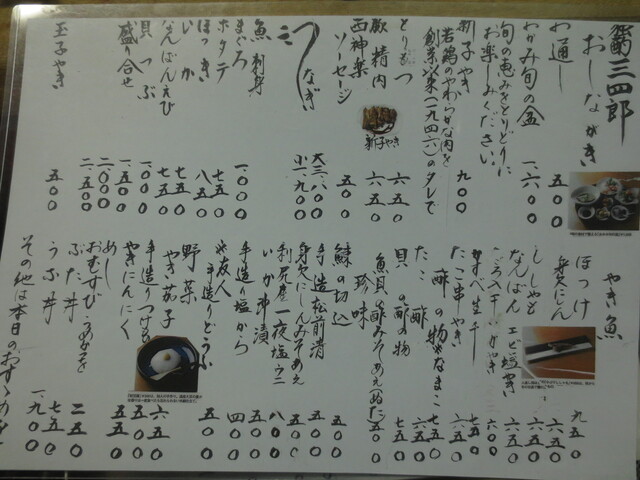 独酌三四郎
おしながき
お通し 五〇〇
わがみ旬の盆 一、六〇〇
旬の恵みをとりどりに
お楽しみください
新子やき 九〇〇
若鶏のやわらかな肉を
創業以来(一九四六)のタレで
とりもつ 六五〇
豚精肉 六五〇
西神楽
ソーセージ 五〇〇
新子やき
うなぎ 大三、八〇〇
小一、九〇〇
魚刺身
まぐろ 一、〇〇〇
ホタテ 七五〇
ほっき 八五〇
いか 七五〇
なんばんえび 七五〇
貝つぶ 一、〇〇〇
盛り合せ 一、五〇〇
二、〇〇〇
二、五〇〇
玉子やき 五〇〇
やき魚
ほっけ 九五〇
身欠にしん 七五〇
ししゃも 六五〇
なんばんエビ塩やき 六五〇
たこ串やき 六五〇
酢の物 なまこ 七五〇
たこ酢 六五〇
貝の酢の物 七五〇
魚貝の酢みそあえぬた 五五〇
珍味
鮭の切込 五〇〇
手造松前漬 五〇〇
身欠にしんみそあえ 五五〇
利尻産一夜塩ウニ 八〇〇
いか沖漬 五〇〇
手造り塩から 四〇〇
冷友人
手造りどうふ 五〇〇
野菜
やき茄子 六五〇
手造りつけもの 五五〇
やきにんにく 五五〇
めし
おむすび 二五〇
ぶた丼 七五〇
うな丼 一、九〇〇
その他は本日のおすすめを